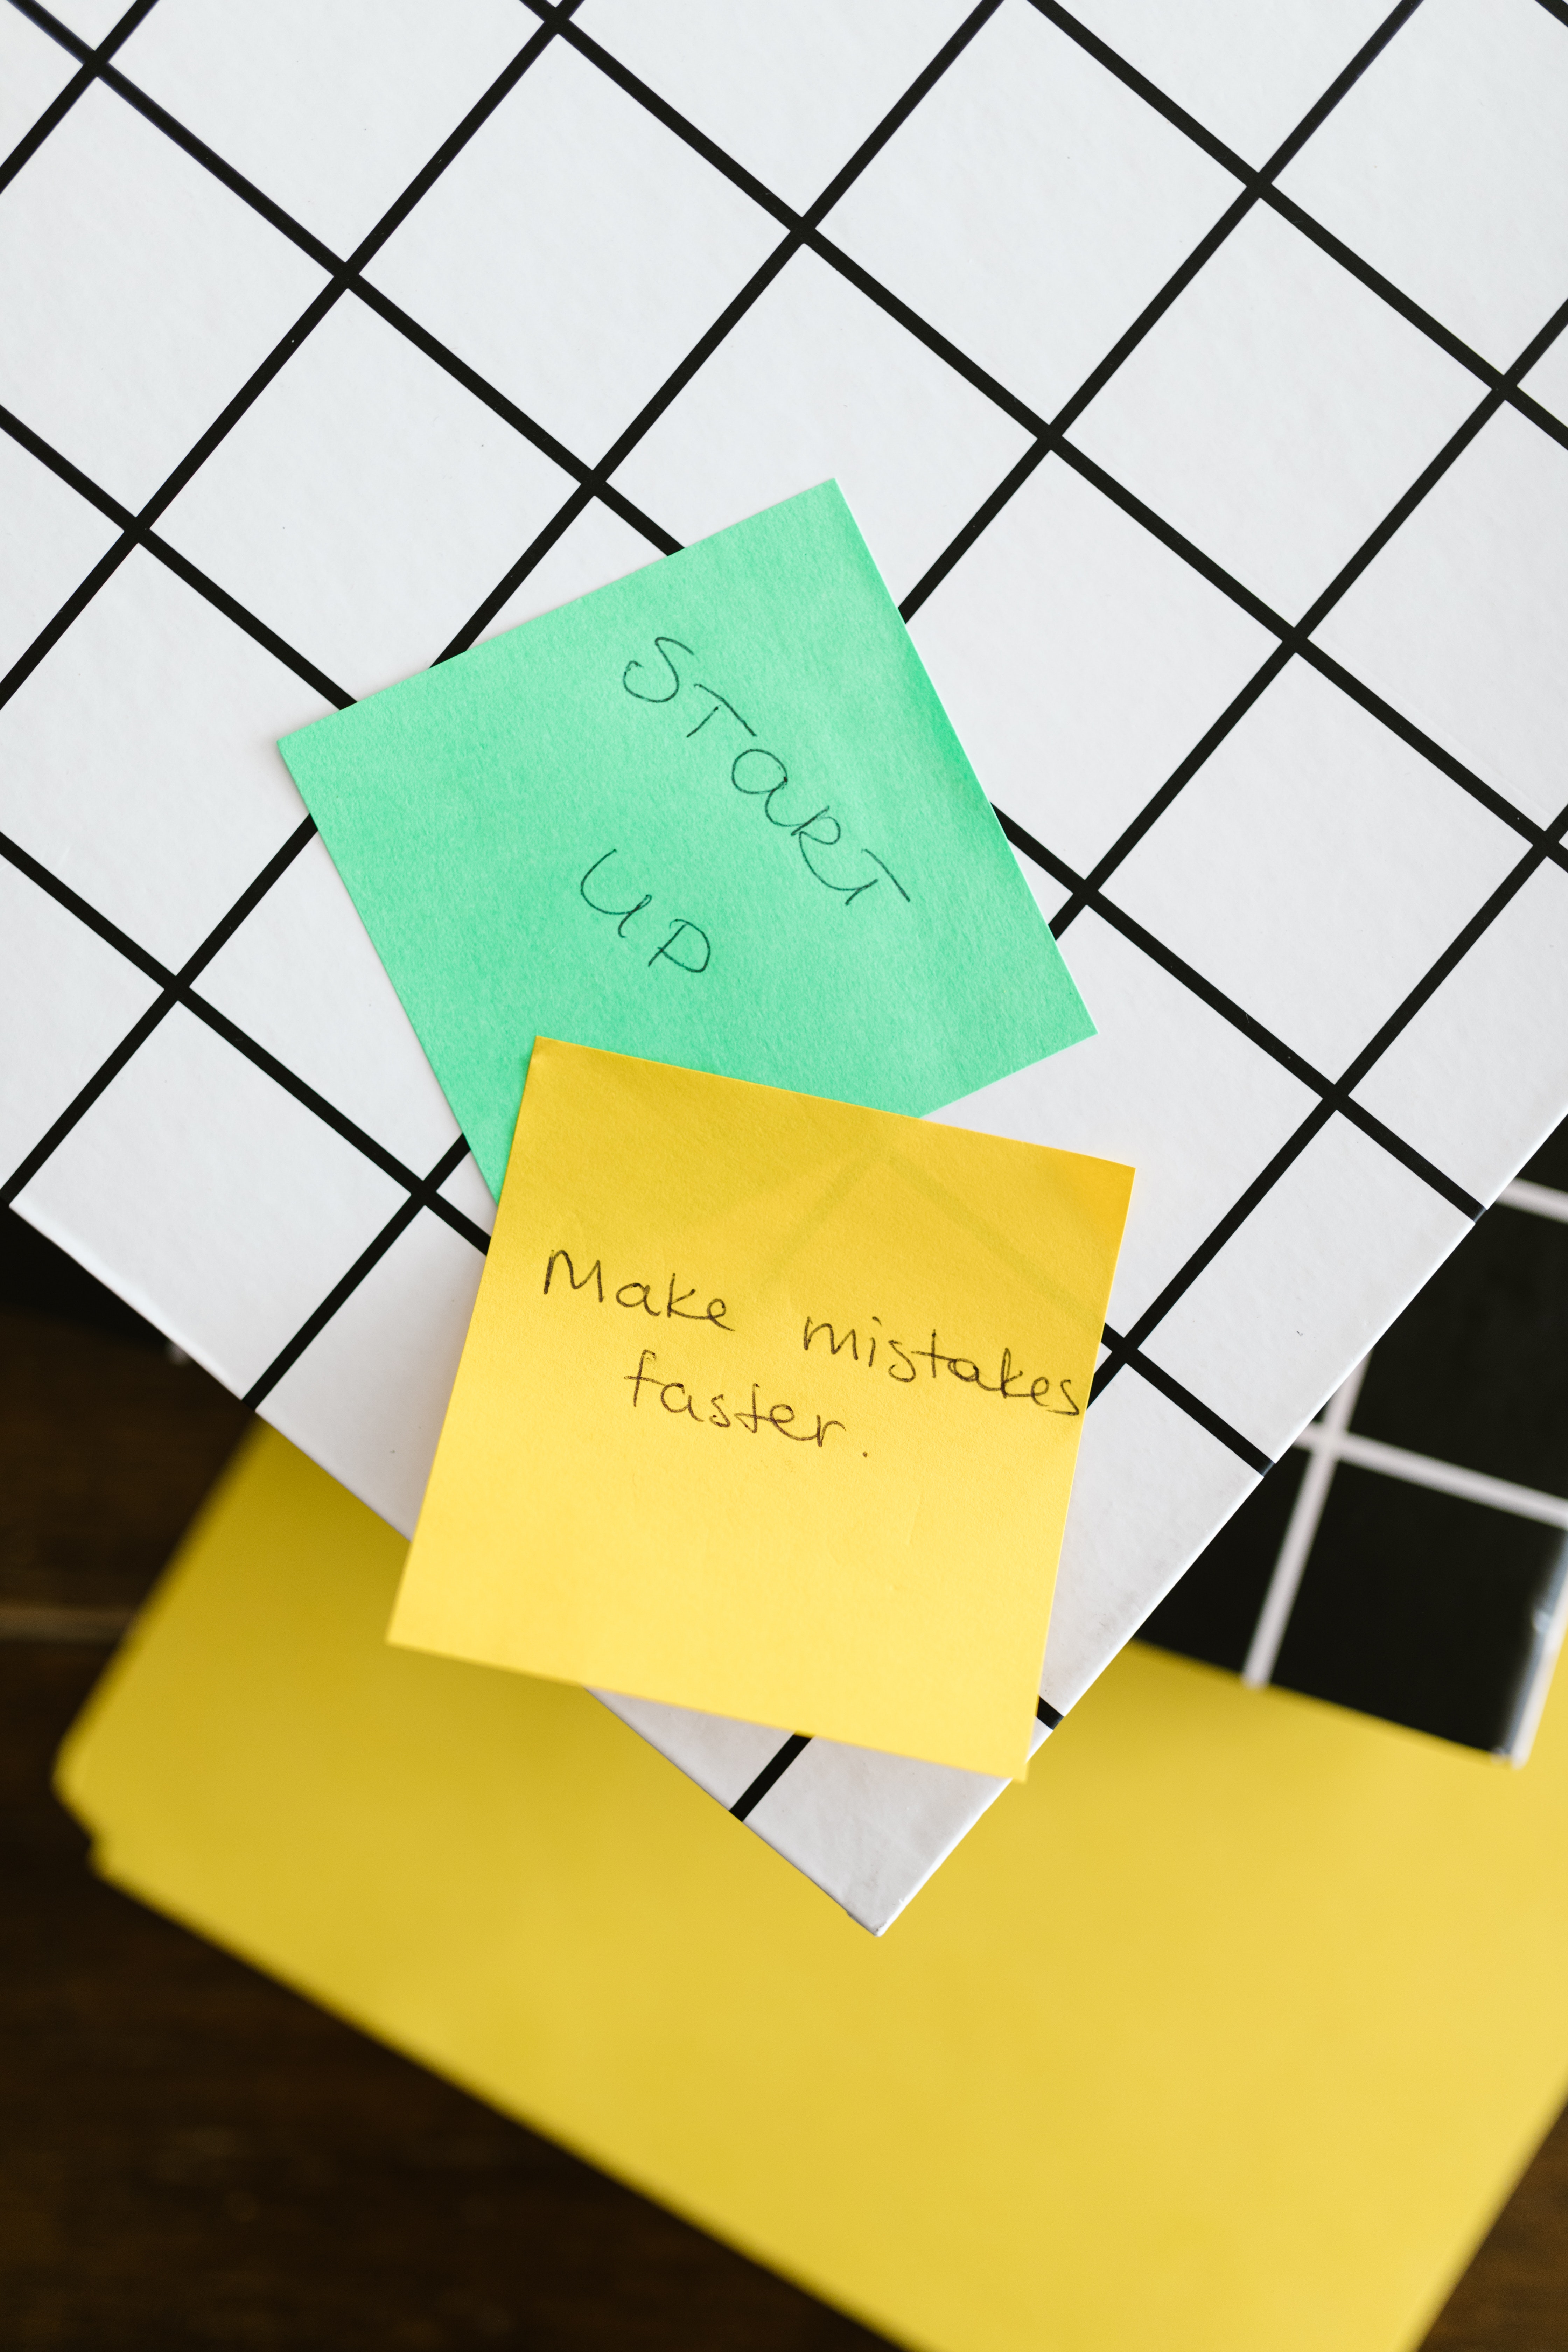 START
UP
Make mistakes
faster.